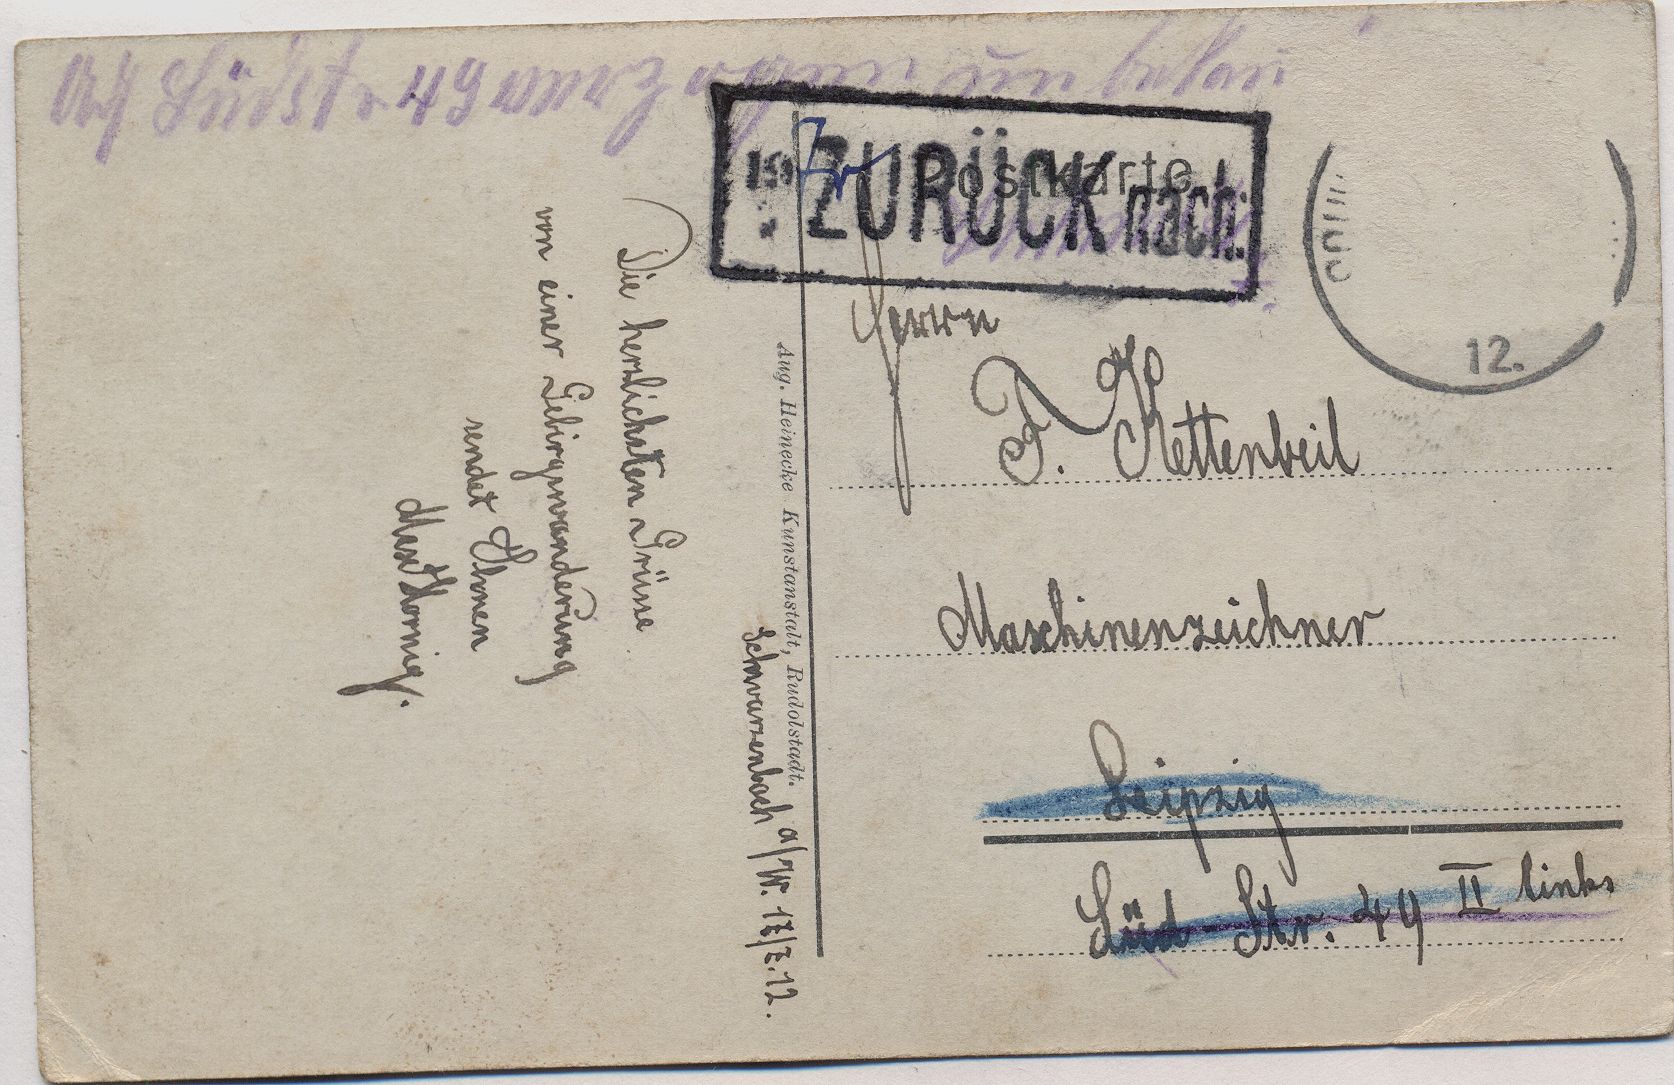 Auf Südstr 49 verzogen unbekan
ZURÜCK nach:
Postkarte
Herrn
F. Kettenbeil
Maschinenzeichner
Leipzig
Süd-Str. 49 II links
12.
Aug. Heinecke Kunstanstalt, Rudolstadt.
Schwarzenbach a/W. 17/7.12.
Die herzlichsten Grüsse
von einer Gebirgswanderung
sendet Ihnen
Max Hornig.